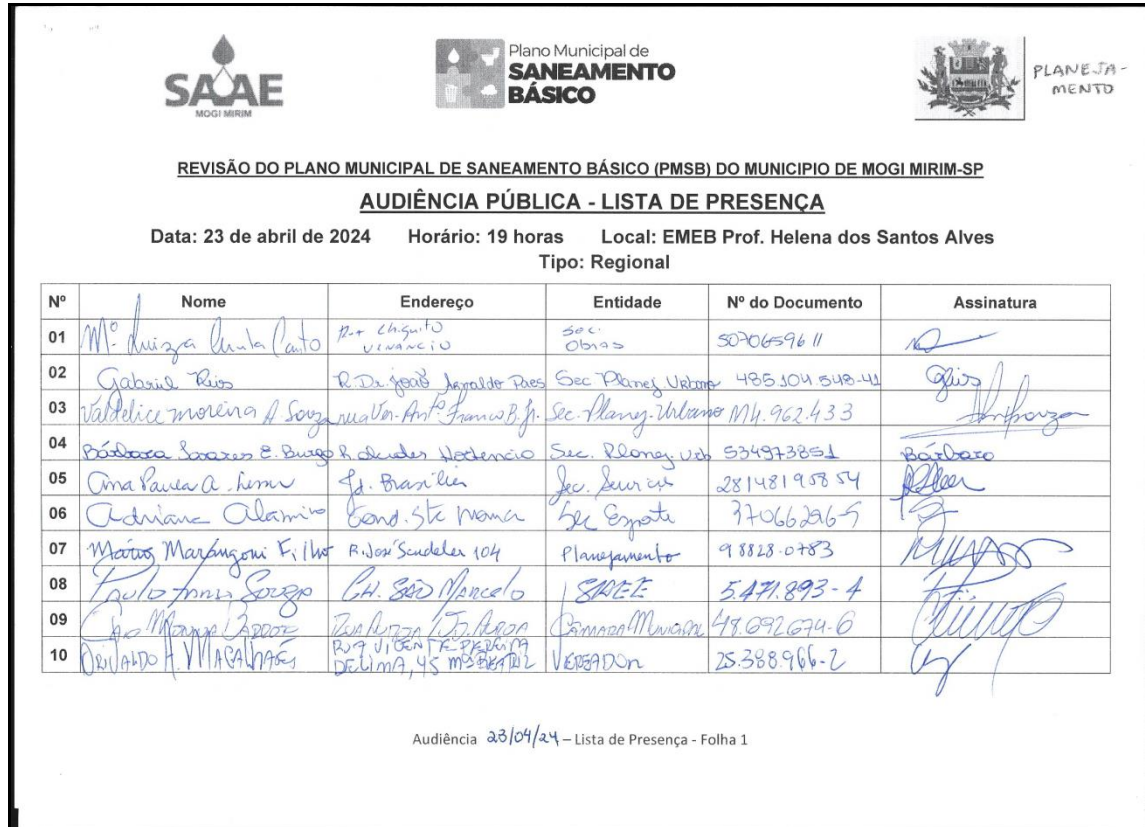 SAAE
MOGI MIRIM
Plano Municipal de
SANEAMENTO
BÁSICO
PLANEJA-
MENTO
REVISÃO DO PLANO MUNICIPAL DE SANEAMENTO BÁSICO (PMSB) DO MUNICIPIO DE MOGI MIRIM-SP
AUDIÊNCIA PÚBLICA - LISTA DE PRESENÇA
Data: 23 de abril de 2024 Horário: 19 horas Local: EMEB Prof. Helena dos Santos Alves
Tipo: Regional
Nº Nome Endereço Entidade Nº do Documento Assinatura
01 Mª Luiza Canto Chiquito Venancio Sec. Obras 5070659611
02 Gabriel Rios R. Dr. João Arnaldo Paes Sec Planej Urbano 485104548-41 GRios
03 Valdelice moreira A Souza rua Ver. Antº Franco B. Jr. Sec. Planej. Urbano M4.962.433
04 Bárbara Soares E. Burgo R. Hortencio Sec. Planej. Urb 534973851 Bárbara
05 Ana Paula A. Jd. Brasília Sec. 28148195854
06 Adriana Alamino Cond. Sta Sec Esporte 37066296-5
07 Marangoni Filho R. José Scudeler 104 Planejamento 98828-0783
08 Paulo Souza CH. SÃO Marcelo SAAE 5.471.893-4
09 CÂMARA Municipal 48.692.674-6
10 ORIVALDO A. MAGALHÃES RUA VICENTE PEREIRA DE LIMA, 45 Mª BEATRIZ VEREADOR 25.388.966-2
Audiência 23/04/24 – Lista de Presença - Folha 1